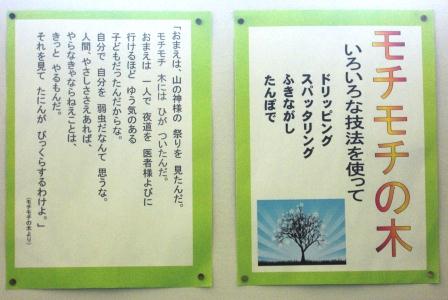 モチモチの木
いろいろな技法を使って
ドリッピング
スパッタリング
ふきながし
たんぽで
「おまえは、山の神様の 祭りを 見たんだ。
モチモチ 木には ひが ついたんだ。
おまえは 一人で 夜道を 医者様よびに
行けるほど ゆう気のある
子どもだったんだからな。
自分で 自分を 弱虫だなんて 思うな。
人間、やさしささえあれば、
やらなきゃならねえことは、
きっと やるもんだ。
それを見て たにんが びっくらするわけよ。」
(モチモチの木より)